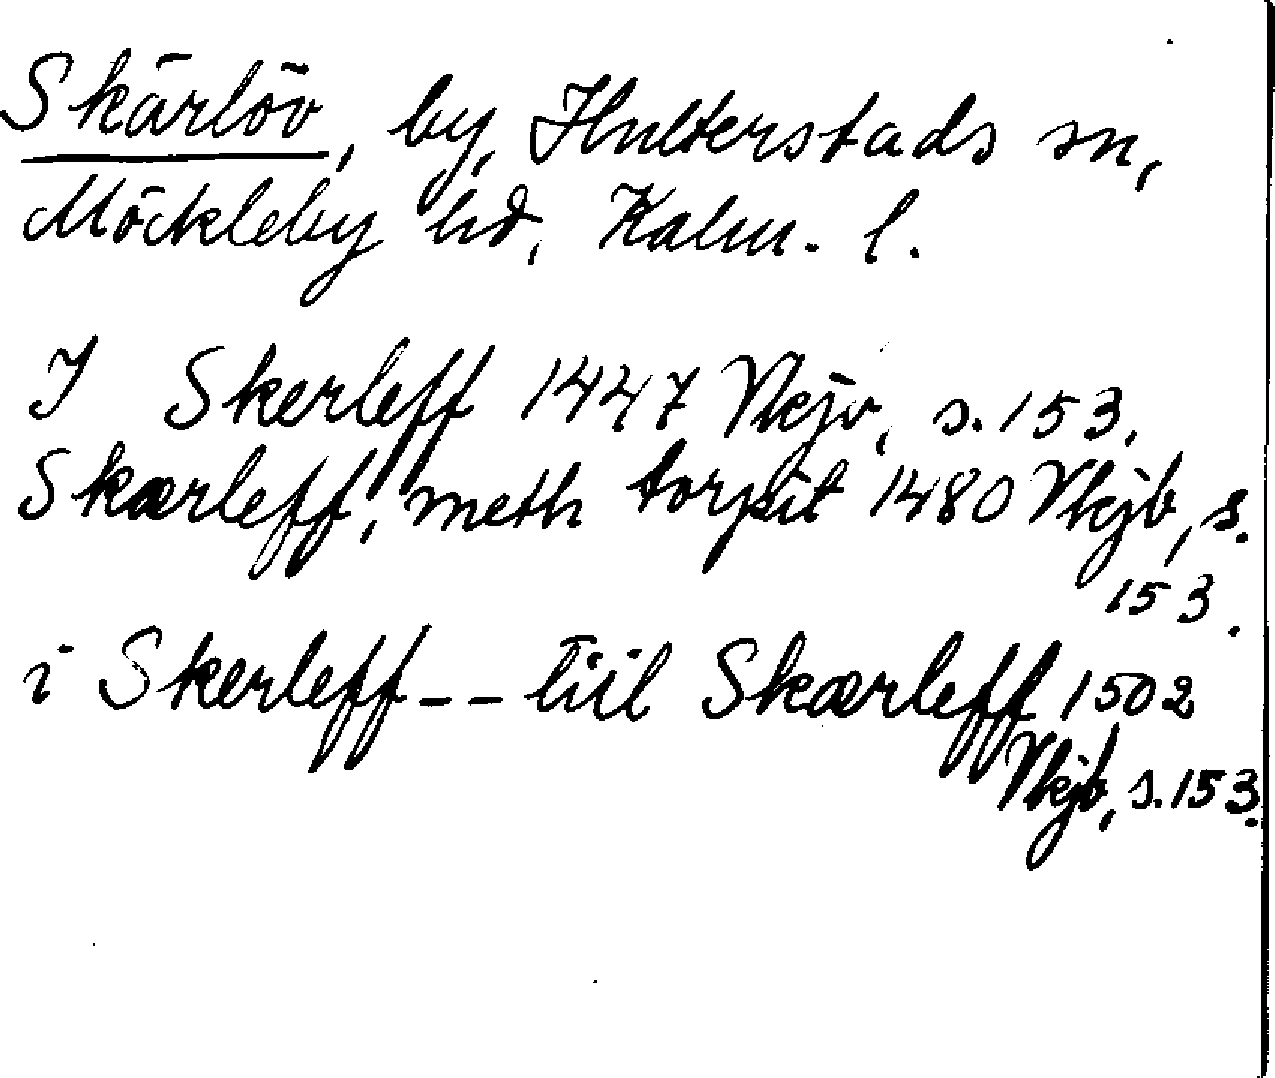 Skärlöv, by, Hulterstads sn,
Möckleby hd, Kalm. l.
I Skerleff 1447 Vkjb, s. 153.
Skærleff, meth torpit 1480 Vkjb, s.
153.
i Skerleff -- tiil Skærleff 1502
Vkjb, s. 153.